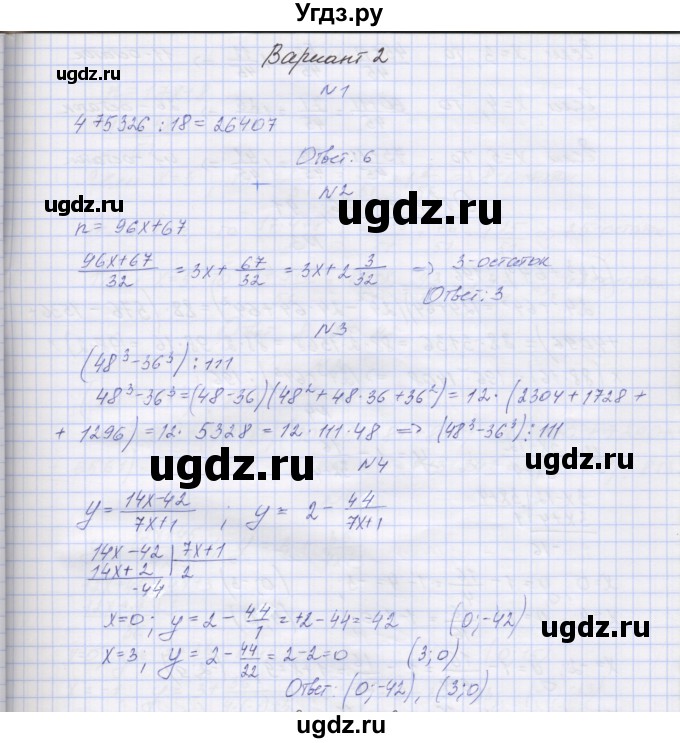 Угдз.ру
Вариант 2
ugdz.ru ugdz.ru
N1
475326 : 18 = 26407
Ответ: 6
ugdz.ru ugdz.ru
N2
n = 96x+67
(96x+67)/32 = 3x + 67/32 = 3x + 2 3/32 => 3-остаток
Ответ: 3
N3
(48³-36³) ⋮ 111
48³-36³ = (48-36)(48²+48·36+36²) = 12·(2304+1728+
+ 1296) = 12·5328 = 12·111·48 => (48³-36³) ⋮ 111
ugdz.ru ugdz.ru
N4
y = (14x-42)/(7x+1) ; y = 2 - 44/(7x+1)
14x-42 | 7x+1
14x+2 | 2
-44
x=0; y = 2 - 44/1 = +2-44 = -42 (0;-42)
ugdz.ru ugdz.ru
x=3; y = 2 - 44/22 = 2-2 = 0 (3;0)
Ответ: (0;-42), (3;0)
ugdz.ru